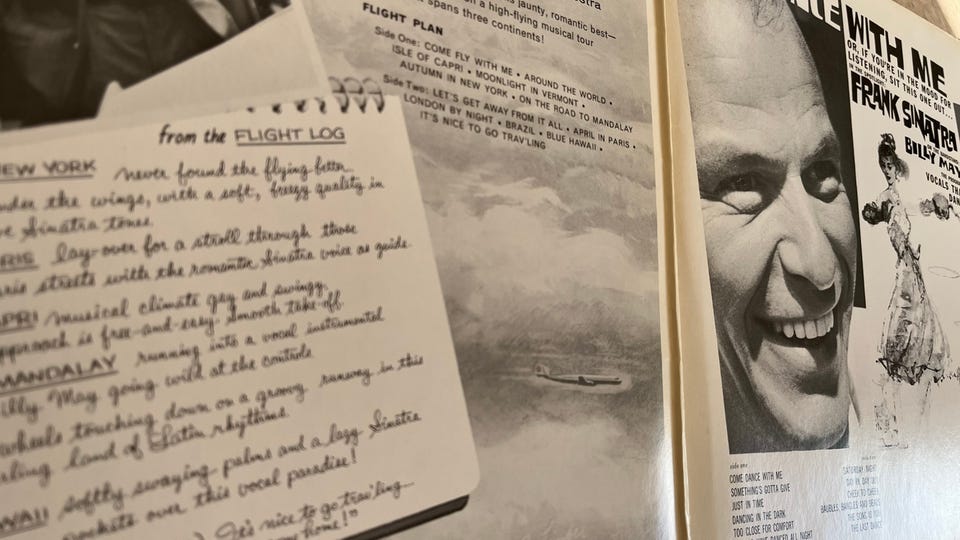 jaunty, romantic best—
on a high-flying musical tour
spans three continents!
FLIGHT PLAN
Side One: COME FLY WITH ME • AROUND THE WORLD •
ISLE OF CAPRI • MOONLIGHT IN VERMONT •
AUTUMN IN NEW YORK • ON THE ROAD TO MANDALAY
Side Two: LET'S GET AWAY FROM IT ALL • APRIL IN PARIS •
LONDON BY NIGHT • BRAZIL • BLUE HAWAII •
IT'S NICE TO GO TRAV'LING
from the FLIGHT LOG
NEW YORK never found the flying better
under the wings, with a soft, breezy quality in
Sinatra tones
lay-over for a stroll through those
streets with the romantic Sinatra voice as guide
musical climate gay and swingy.
approach is free-and-easy. Smooth take-off.
MANDALAY running into a vocal instrumental
Billy May going wild at the controls
wheels touching down on a groovy runway in this
land of Latin rhythms
softly swaying palms and a lazy Sinatra
over this vocal paradise!
It's nice to go trav'ling
home!"
WITH ME
OR, IF YOU'RE IN THE MOOD FOR
LISTENING, SIT THIS ONE OUT...
FRANK SINATRA
BILLY MAY
VOCALS
side one
COME DANCE WITH ME
SOMETHING'S GOTTA GIVE
JUST IN TIME
DANCING IN THE DARK
TOO CLOSE FOR COMFORT
DANCED ALL NIGHT
SATURDAY NIGHT
DAY IN, DAY OUT
CHEEK TO CHEEK
BAUBLES, BANGLES AND BEADS
THE SONG IS YOU
THE LAST DANCE